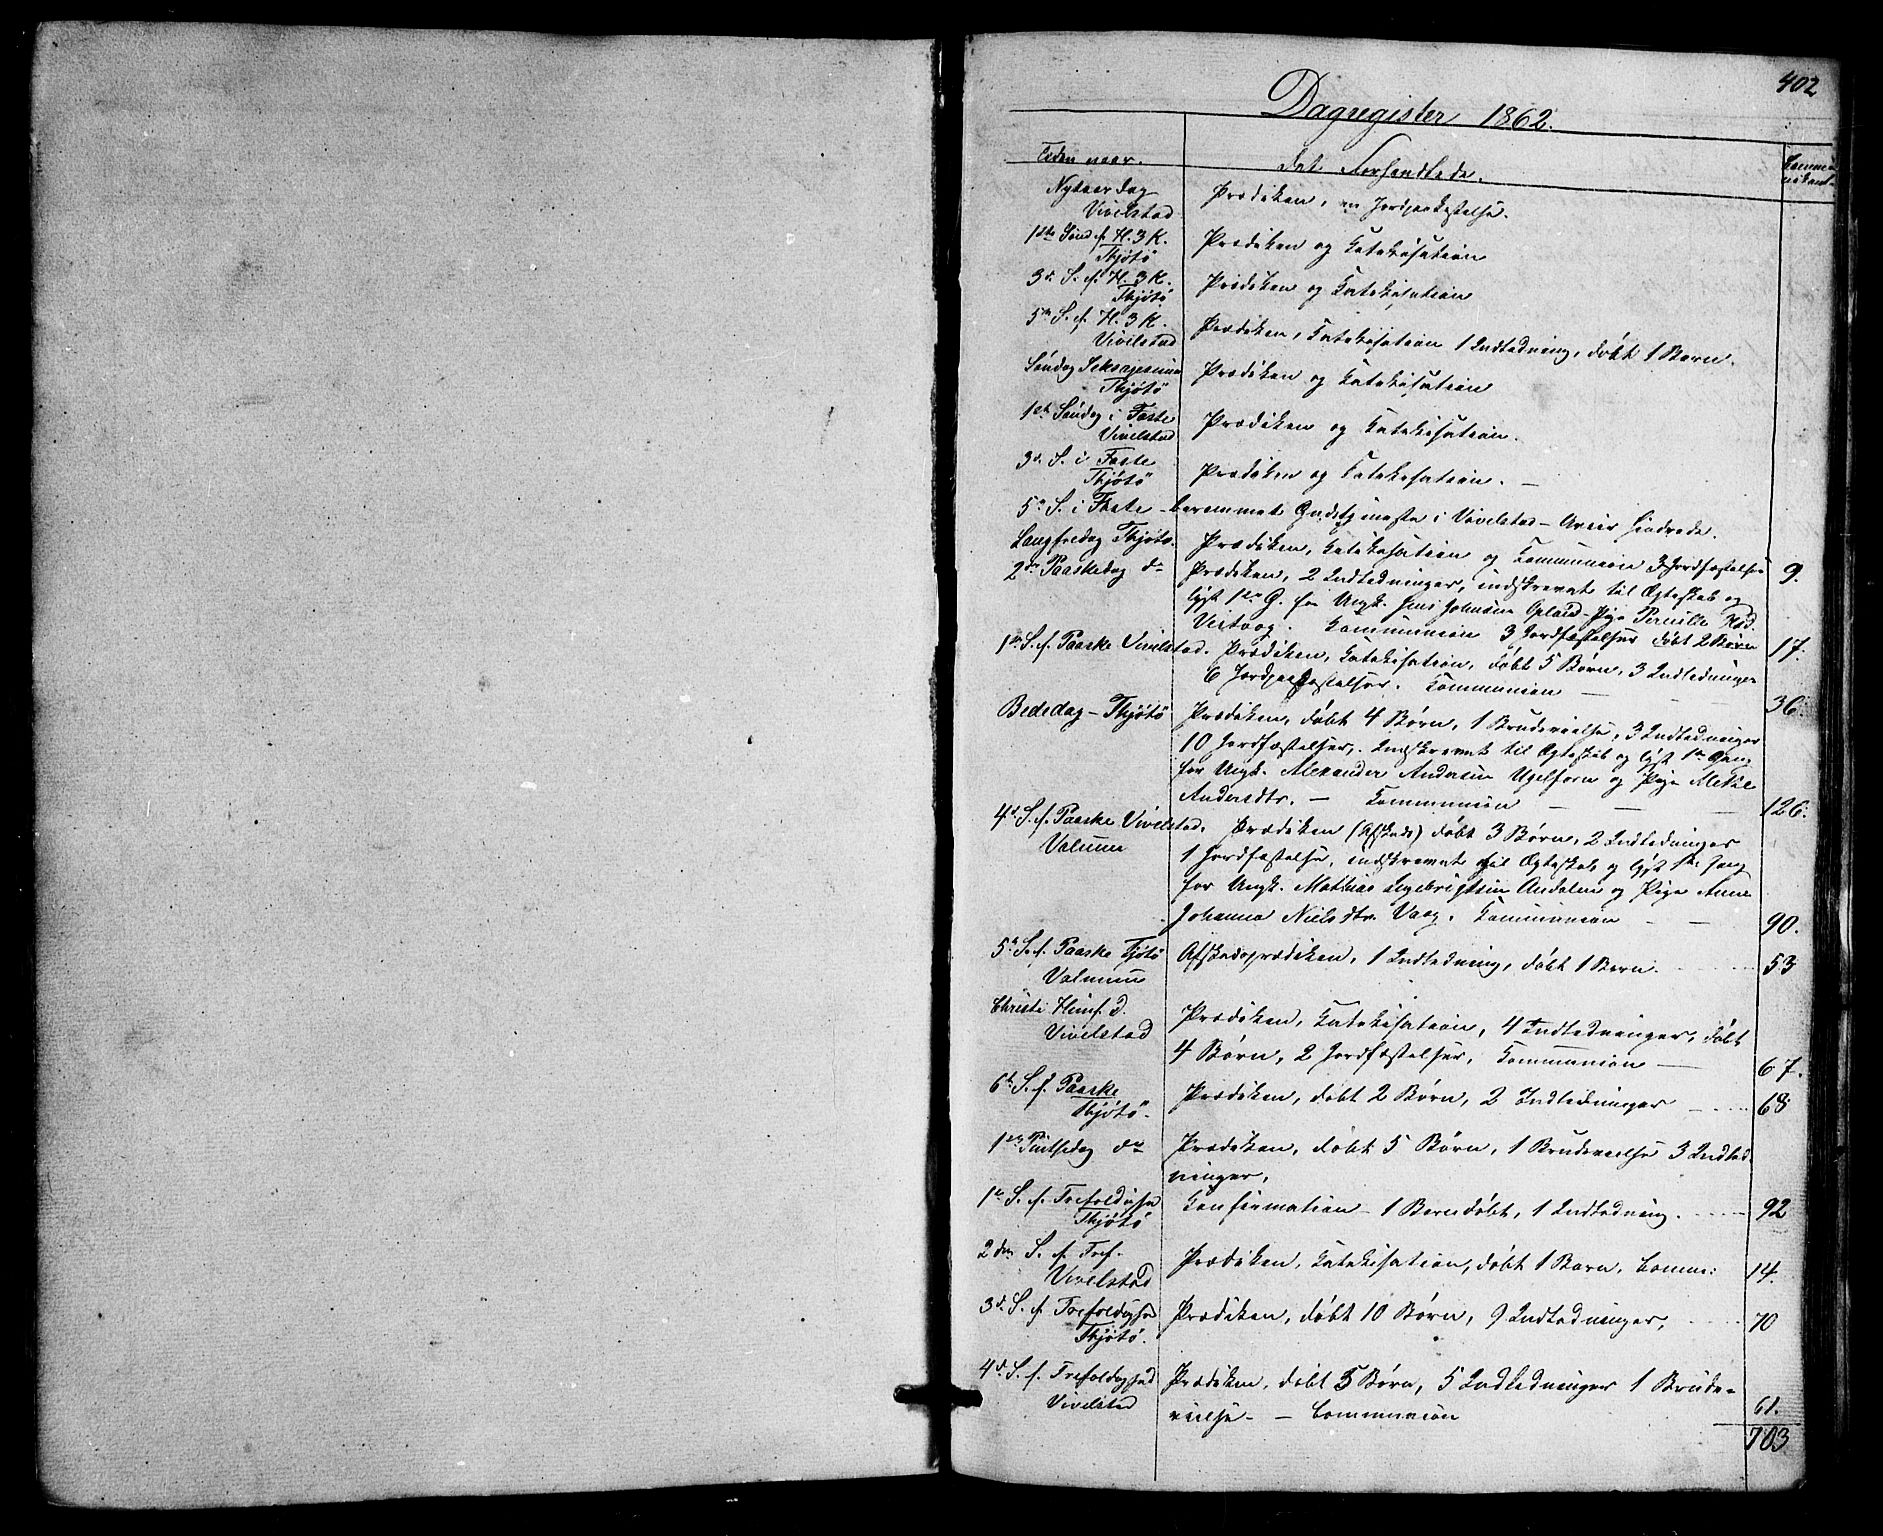 402
Dagregister 1862.
Tiden naar. Det Forhandlede. Commu-
nikant.
Nytaarsdag
Vivelstad Prædiken, en Jordpaakastelse.
1ste Sønd f. H. 3 K.
Thjøtø Prædiken og Katekisation
3d. S. f. H. 3 K.
Thjøtø Prædiken og Katekisation
5te S. f. H. 3 K.
Vivelstad Prædiken, Katekisation 1 Indledning, døbt 1 Barn.
Søndag Seksagesima
Thjøtø Prædiken og Katekisation
1ste Søndag i Faste
Vivelstad Prædiken og Katekisation.
3d. S. i Faste
Thjøtø Prædiken og Katekisation. —
5te S. i Faste - berammet Gudstjeneste i Vivelstad - Uveir hindrede.
Langfredag Thjøtø. Prædiken, Katekisation og Kommunion 3 Jordfæstelser 9.
2den Paaskedag do Prædiken, 2 Indledninger, indskrevet til Ægteskab og
lyst 1ste G. for Ungk. Jens Johnsen - Pige Pernille
Kommunion 3 Jordfæstelser døbt 2 Børn 17.
1ste S. f. Paaske Vivelstad. Prædiken, Katekisation, døbt 5 Børn, 3 Indledninger
6 Jordpaakastelser. Kommunion — 36.
Bededag - Thjøtø Prædiken, døbt 4 Børn, 1 Brudevielse, 3 Indledninger
10 Jordfæstelser, Indskrevet til Ægteskab og lyst 1ste Gang
for Ungk. Alexander Andersen og Pige Mette
Andersdtr. — Kommunion — — 126.
4d. S. f. Paaske Vivelstad. Prædiken (Afskeds) døbt 3 Børn, 2 Indledninger
Valeur 1 Jordfæstelse, indskrevet til Ægteskab og lyst 1ste Gang
for Ungk. Mathias Ingebrigtsen Andalen og Pige Anne
Johanna Nielsdtr. Vaag. Kommunion — — 90.
5te S. f. Paaske Tjøtø Afskedsprædiken, 1 Indledning, døbt 1 Barn. 53
Christi Himf. D.
Vivelstad Prædiken, Katekisation, 4 Indledninger, døbt
4 Børn, 2 Jordfæstelser, Kommunion — 67.
6te S. f. Paaske
Thjøtø. Prædiken, døbt 2 Børn, 2 Indledninger — 68
1ste Pintsedag do Prædiken, døbt 5 Børn, 1 Brudevielse 3 Indled-
ninger,
1ste S. f. Trefoldighed
Thjøtø Konfirmation - 1 Barn døbt, 1 Indledning. 92
2den S. f. Tref.
Vivelstad Prædiken, Katekisation, døbt 1 Barn, Comm: 14.
3d. S. f. Trefoldighed
Thjøtø. Prædiken, døbt 10 Børn, 9 Indledninger, 70
4d. S. f. Trefoldighed
Vivelstad Prædiken, døbt 5 Børn, 5 Indledninger 1 Brude-
vielse - — Communion 61.
703